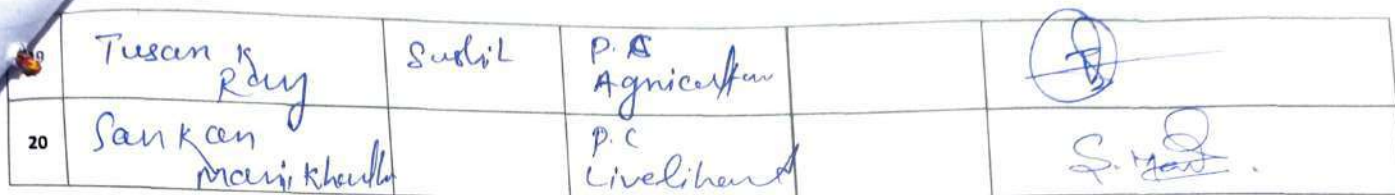 Tusan K Ray Sushil P.C Agriculture
20 Sankar Manjikhanthi P.C Livelihood